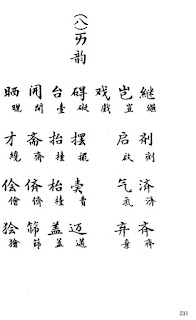 継 繼 剂 劑 済 濟 斉 齊
岂 豈 启 啟 气 氣 弃 棄
戏 戲
(八)ㄞ韵
碍 礙 摆 擺 卖 賣 迈 邁
台 臺 抬 枱 盖 蓋
開 斋 齋 侪 儕 筛 篩
晒 曬 才 纔 侩 儈 狯 獪
231